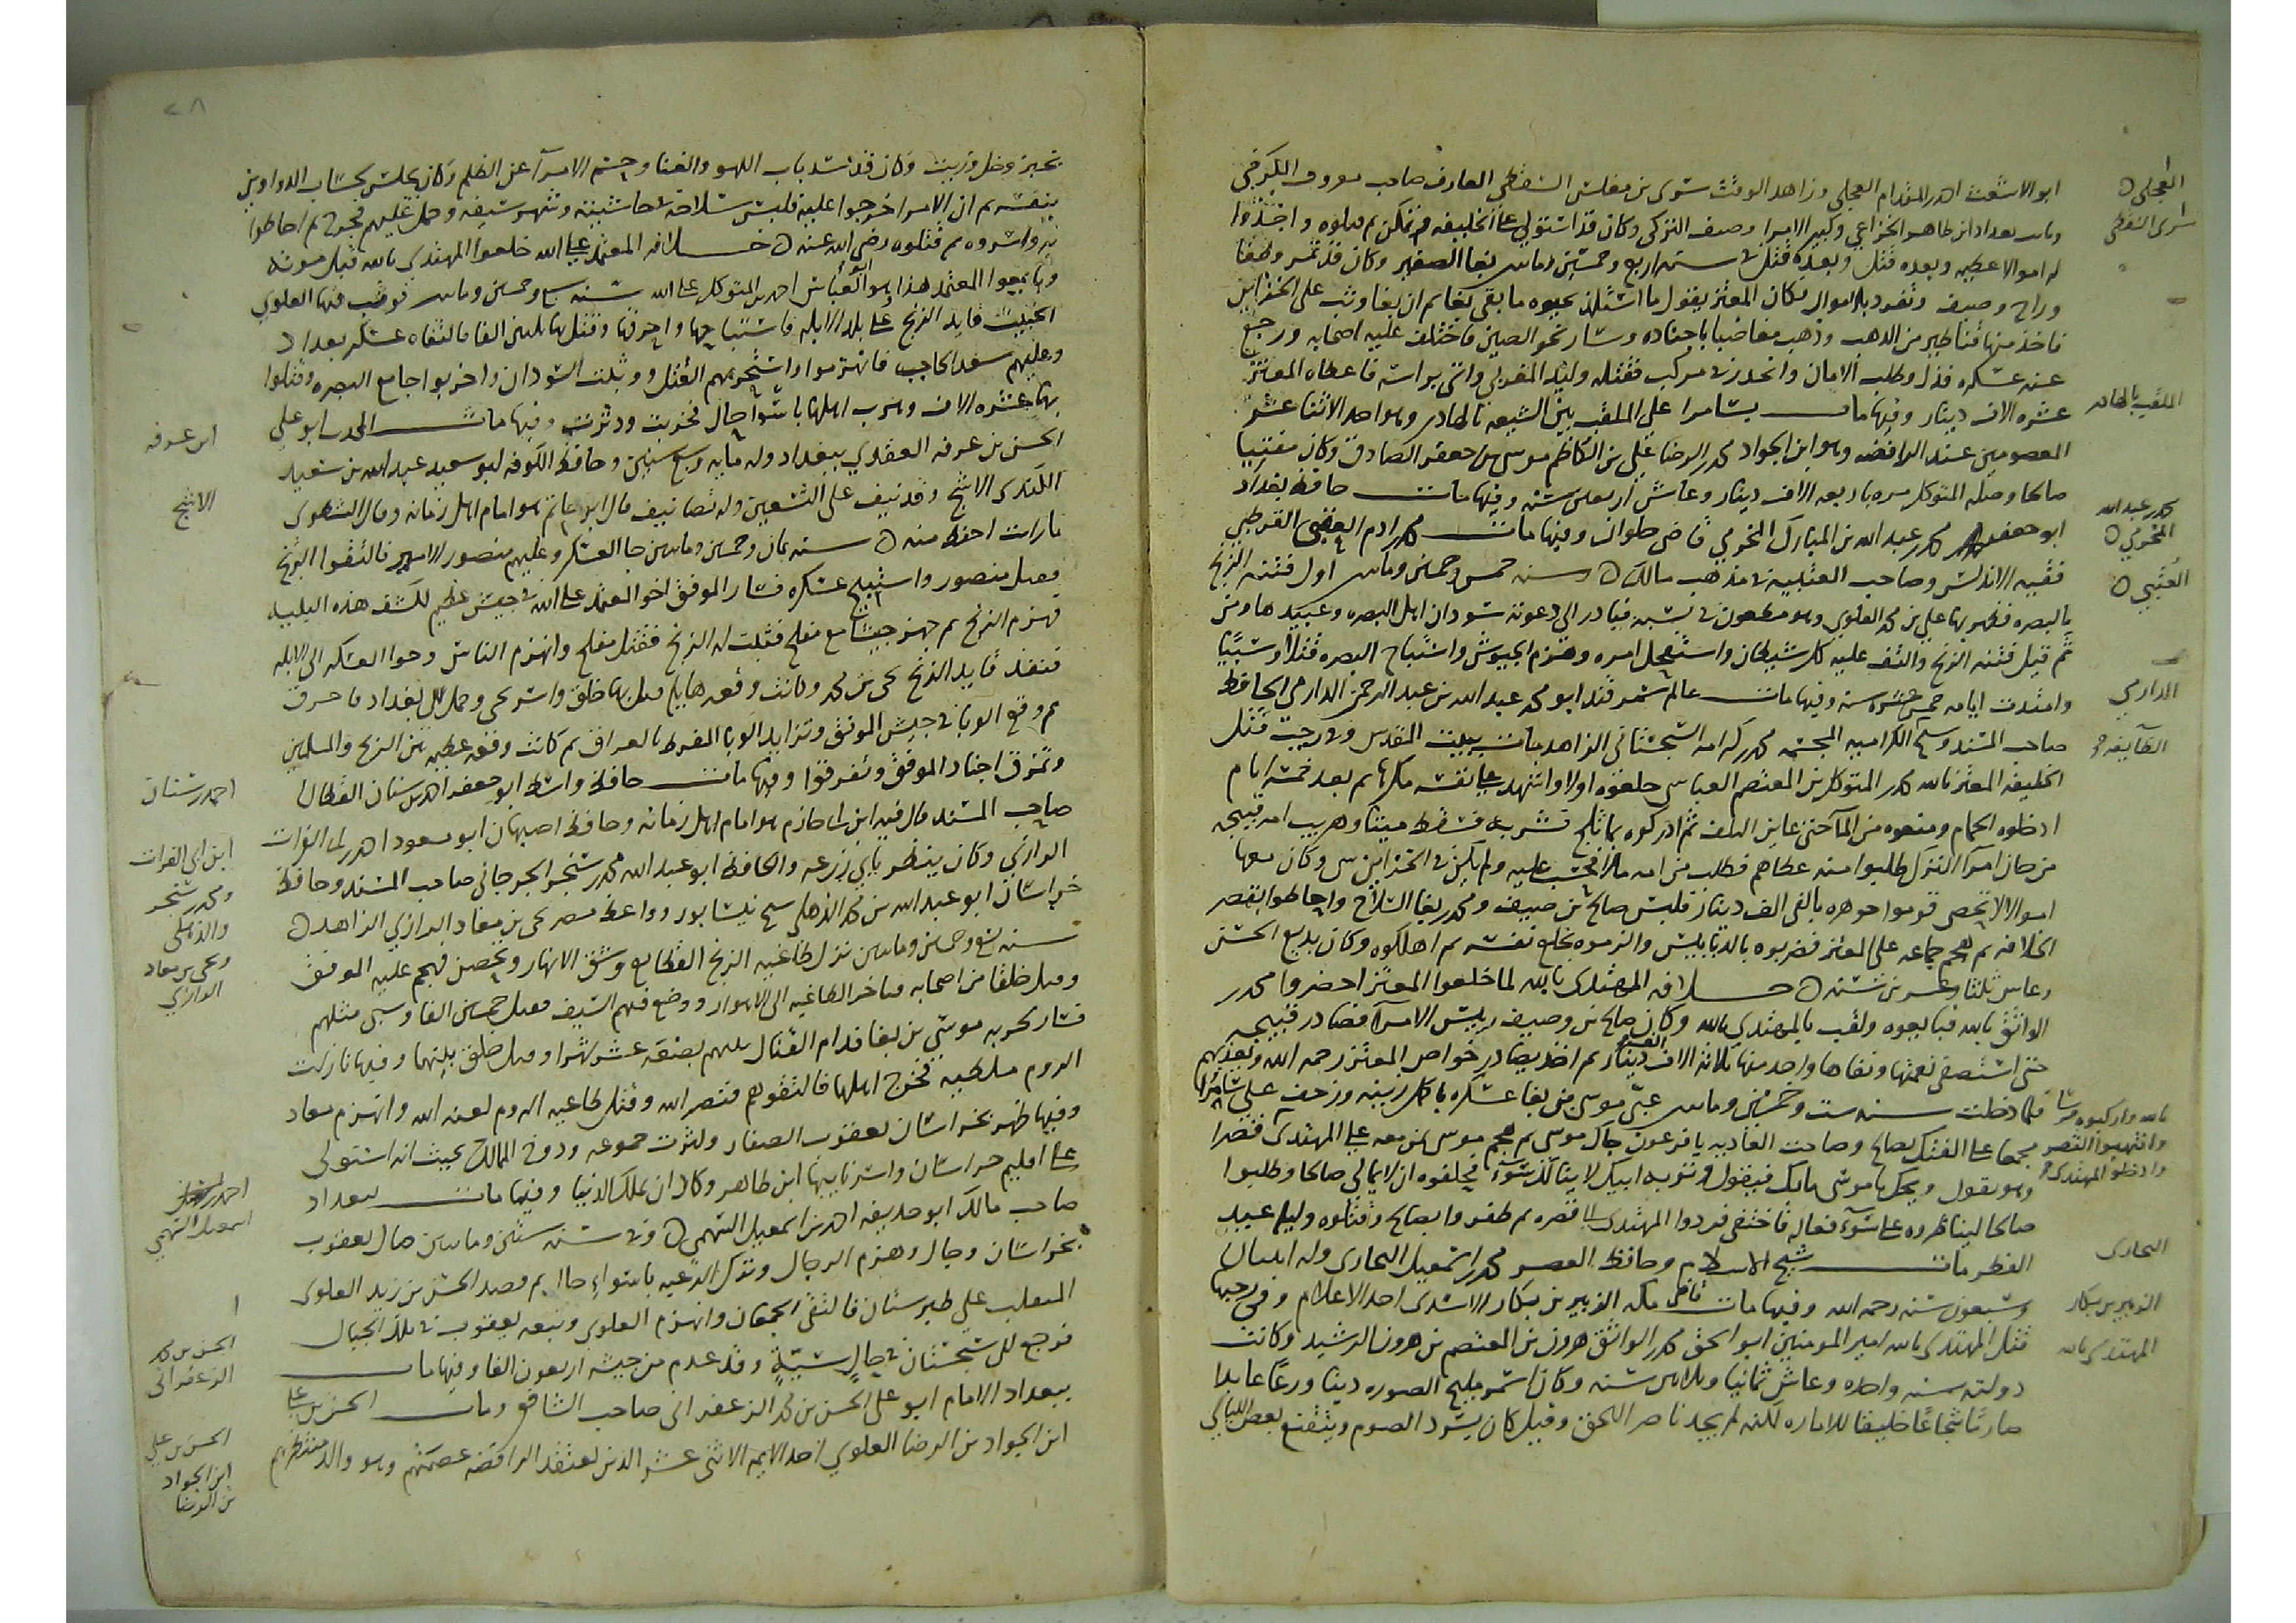 ابو الاشعث احمد بن المقدام العجلي وزاهد الوقت سري بن مغلس السقطي العارف صاحب معروف الكرخي
ونايب بغداد ابن طاهر الخزاعي وكبير الامرا وصيف التركي وكان قد استولي على الخليفه وتمكن ثم قتلوه واخذوا
له اموالا عظيمه وبعده قتل في سنه اربع وخمسين وماتين بغا الصغير وكان قد تمرد وطغا
وراح وصيف وتفرد بالاموال فكان المعتز يقول ما استلذ بحيوه ما بقي بغا ثم ان بغا وثب على الخزاين
فاخذ منها قناطير من الذهب وذهب مغاضبا باجناده وسار نحو الصين فاختلف عليه اصحابه ورجع
عنه عسكره فذل وطلب الامان وانحدر في مركب فقتله وليد المغربي واتى براسه فاعطاه المعتز
عشره الاف دينار وفيها مات بسامرا علي الملقب بين الشيعه بالهادي وهو احد الاثنا عشر
المعصومين عند الرافضه وهو ابن الجواد محمد بن الرضا علي بن الكاظم موسى بن جعفر الصادق وكان مفتيا
صالحا وصله المتوكل مره باربعه الاف دينار وعاش اربعين سنه وفيها مات حافظ بغداد
ابو جعفر محمد بن عبد الله بن المبارك المخرمي قاضي حلوان وفيها مات العتبي القرطبي
فقيه الاندلس وصاحب العتبية في مذهب مالك سنه خمس وخمسين وماتين اول فتنه الزنج
بالبصره فظهر بها علي بن محمد العلوي وهو مطعون في نسبه فبادر الى دعوته سودان اهل البصره وعبيدها ومن
ثم قيل فتنه الزنج والتف عليه كل شيطان واستفحل امره وهزم الجيوش واستباح البصره قتلا وسبيا
وامتدت ايامه خمس عشره سنه وفيها مات عالم سمرقند ابو محمد عبد الله بن عبد الرحمن الدارمي الحافظ
صاحب المسند وشيخ الكراميه المجسمه محمد بن كرام السجستاني الزاهد مات ببيت المقدس وفي رجب قتل
الخليفه المعتز بالله محمد بن المتوكل بن المعتصم العباسي خلعوه اولا واشهد على نفسه مكرها ثم بعد خمسه ايام
ادخلوه الحمام ومنعوه من الما حتى عاين التلف ثم ادركوه بما ثلج فشربه فسقط ميتا وهربت امه قبيحه
من حاز امرا الترك طلبوا منه عطاهم فطلب من امه مالا فشحت عليه ولم يكن في الخزاين شي وكان معها
اموالا لا تحصى قوموا جوهره بالفي الف دينار فلبس صالح بن وصيف ومحمد بن بغا السلاح واحاطوا بقصر
الخلافه ثم هجم جماعه على المعتز فضربوه بالدبابيس والزموه بخلع نفسه ثم اهلكوه وكان بديع الحسن
وعاش ثلثا وعشرين سنه خلافه المهتدي بالله لما خلعوا المعتز احضروا محمد بن
الواثق بالله فبايعوه ولقب بالمهتدي بالله وكان صالح بن وصيف رييس الامرا فصادر قبيحه
حتى استصفى نعمتها ونفاها واخذ منها ثلاثه الاف الف دينار ثم اخذ يصادر خواص المعتز رحمه الله ويعذبهم
فلما دخلت سنه ست وخمسين وماتين عبى موسى بن بغا عسكره باكمل زينه وزحف على سامرا
مجمعا على الفتك بصالح وصاحت العاده يا فرعون جاك موسى ثم هجم موسى بمن معه على المهتدي قصرا
وهو يقول ويحك يا موسى مالك فيقول وتربه ابيك لا ينالك سوء فحلفوه ان لا يمالي صالحا وطلبوا
صالحا ليناظروه على سوء فعاله فاختفى فردوا المهتدي الى قصره ثم ظفروا بصالح وقتلوه وليله عيد
الفطر مات شيخ الاسلام وحافظ العصر محمد بن اسمعيل البخاري وله اثنان
وستون سنه رحمه الله وفيها مات قاضي مكه الزبير بن بكار الاسدي احد الاعلام وفي رجبها
قتل المهتدي بالله امير المومنين ابو اسحق محمد بن الواثق هرون بن المعتصم بن هرون الرشيد وكانت
دولته سنه واحده وعاش ثمانيا وثلاثين سنه وكان اسمر مليح الصوره دينا ورعا عابدا
صارما شجاعا خليقا للاماره لكنه لم يجد ناصرا للحق وقيل كان يسرد الصوم ويتقنع بعض الليالي
العجلي
سري السقطي
الملقب بالهادي
محمد بن عبد الله
المخرمي
العتبي
الدارمي
وانتهبوا القصر
وادخلوا المهتدي
البخاري
الزبير بن بكار
المهتدي بالله
٢٨
بخبز وخل وزيت وكان قد سد باب اللهو والغنا وحسم الامرا عن الظلم وكان يجلس بحساب الدواوين
بنفسه ثم ان الامرا خرجوا عليه فلبس سلاحه في حاشيته وشهر سيفه وحمل عليهم فجرح ثم احاطوا
به واسروه ثم قتلوه رضي الله عنه خلافه المعتمد على الله خلعوا المهتدي بالله قبل موته
وبايعوا المعتمد هذا وهو ابو العباس احمد بن المتوكل على الله سنه سبع وخمسين وماتين فوثب فيها العلوي
الخبيث قايد الزنج على بلد الابله فاستباحها واحرقها وقتل بها ثلثين الفا فالتقاه عسكر بغداد
وعليهم سعد الحاجب فانهزموا واستحر بهم القتل ودخلت السودان واخربوا جامع البصره وقتلوا
بها عشره الاف وهرب اهلها باسوا حال فخربت ودثرت وفيها مات المحدث ابو علي
الحسن بن عرفه العبدي ببغداد وله مايه وسبع سنين وحافظ الكوفه ابو سعيد عبد الله بن سعيد
الكندي الاشج وقد نيف على التسعين وله تصانيف قال ابو حاتم هو امام اهل زمانه وقال الشطوي
ما رات احفظ منه سنه ثمان وخمسين وماتين جا العسكر وعليهم منصور الامير فالتقوا الزنج
فقتل منصور واستبيح عسكره فسار الموفق اخو المعتمد على الله في جيش عظيم لكشف هذه البليه
فهزم الزنج ثم جهز جيشا مع مفلح فثبت له الزنج فقتل مفلح وانهزم الناس
فنفذ قايد الزنج يحيى بن محمد وكانت وقعه هايله قتل بها خلق واسر يحيى وحمل الى بغداد فاحرق
ثم وقع الوبا في جيش الموفق وتزايد الوبا المفرط بالعراق ثم كانت وقعه عظيمه بين الزنج والمسلمين
وتمزق اجناد الموفق وتفرقوا وفيها مات حافظ واسط ابو جعفر احمد بن سنان القطان
صاحب المسند قال فيه ابن ابي حازم هو امام اهل زمانه وحافظ اصبهان ابو مسعود احمد بن الفرات
الرازي وكان ينظر بابي زرعه والحافظ ابو عبد الله محمد بن سنجر الجرجاني صاحب المسند وحافظ
خراسان ابو عبد الله بن محمد الذهلي شيخ نيسابور وواعظ مصر يحيى بن معاذ الرازي الزاهد
سنه تسع وخمسين وماتين نزل طاغيه الزنج القطايع وشق الانهار وتحصن فهجم عليه الموفق
وقتل خلقا من اصحابه فتاخر الطاغيه الى الاهواز ووضع فيهم السيف فقتل خمسين الفا وسبى مثلهم
فسار لحربه موسى بن بغا فدام القتال بينهم بضعه عشر شهرا وقتل خلق بينهما وفيها نازلت
الروم ملطيه فخرج اهلها فالتقوهم فنصر الله وقتل طاغيه الروم لعنه الله وانهزم
وفيها ظهر بخراسان يعقوب الصفار وكثرت جموعه ودوخ الممالك بحيث انه استولى
على اقليم خراسان واسر نايبها ابن طاهر وكاد ان يملك الدنيا وفيها مات ببغداد
صاحب مالك ابو حذيفه احمد بن اسمعيل السهمي وفي سنه ستين وماتين صال يعقوب
بخراسان وجال وهزم الرجال وترك الرعيه باسواء حال ثم قصد الحسن بن زيد العلوي
المتغلب على طبرستان فالتقى الجمعان وانهزم العلوي وتبعه يعقوب في تلك الجبال
فرجع الى سجستان في حال سيئة وقد عدم من جيشه اربعون الفا وفيها مات
ببغداد الامام ابو علي الحسن بن محمد الزعفراني صاحب الشافعي ومات الحسن بن علي
ابن الجواد بن الرضا العلوي احد الايمه الاثنى عشر الذين تعتقد الرافضه عصمتهم وهو والد منتظرهم
ابن عرفه
الاشج
احمد بن سنان
ابن ابي الفرات
ومحمد بن سنجر
والذهلي
ويحيى بن معاد
الرازي
اسمعيل السهمي
الحسن بن محمد
الزعفراني
الحسن بن علي
ابن الجواد
بن الرضا